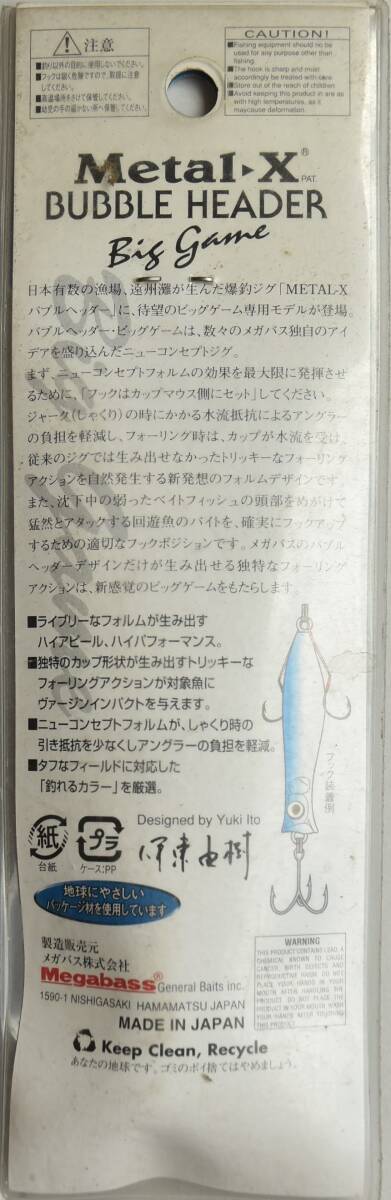 注意
■釣り以外の目的に使用しないでください。
■フックは鋭く危険ですので、取扱に注意
してください。
■高温場所をさけて保管してください。
■幼児の手の届かない所へ保管してください。
CAUTION!
■Fishing equipment should no be
used for any purpose other than
fishing.
■The hook is sharp and must
accordingly be treated with care.
■Store out of the reach of children
■Avoid keeping this product in are as
with high temperatures, as it
maycause deformation.
Metal▸X®
PAT.
BUBBLE HEADER
Big Game
日本有数の漁場、遠州灘が生んだ爆釣ジグ「METAL-X
バブルヘッダー」に、待望のビッグゲーム専用モデルが登場。
バブルヘッダー・ビッグゲームは、数々のメガバス独自のアイ
デアを盛り込んだニューコンセプトジグ。
まず、ニューコンセプトフォルムの効果を最大限に発揮させ
るために、「フックはカップマウス側にセット」してください。
ジャータ(しゃくり)の時にかかる水流抵抗によるアングラー
の負担を軽減し、フォーリング時は、カップが水流を受け、
従来のジグでは生み出せなかったトリッキーなフォーリング
アクションを自然発生する新発想のフォルムデザインです。
また、沈下中の弱ったベイトフィッシュの頭部をめがけて
猛然とアタックする回遊魚のバイトを、確実にフックアップ
するための適切なフックポジションです。メガバスのバブル
ヘッダーデザインだけが生み出せる独特なフォーリング
アクションは、新感覚のビッグゲームをもたらします。
■ライブリーなフォルムが生み出す
ハイアピール、ハイパフォーマンス。
■独特のカップ形状が生み出すトリッキーな
フォーリングアクションが対象魚に
ヴァージンインパクトを与えます。
■ニューコンセプトフォルムが、しゃくり時の
引き抵抗を少なくしアングラーの負担を軽減。
■タフなフィールドに対応した
「釣れるカラー」を厳選。
フック装着例
紙
台紙
プラ
ケース:PP
Designed by Yuki Ito
伊東由樹
地球にやさしい
パッケージ材を使用しています
製造販売元
メガバス株式会社
Megabass® General Baits inc.
1590-1 NISHIGASAKI HAMAMATSU JAPAN
MADE IN JAPAN
Keep Clean, Recycle
あなたの地球です。ゴミのポイ捨てはやめましょう。
WARNING
THIS PRODUCT CONTAINS LEAD, A
CHEMICAL KNOWN TO CAUSE
CANCER, BIRTH DEFECTS AND
REPRODUCTIVE HARM. DO NOT
PLACE YOUR HANDS IN YOUR
MOUTH AFTER HANDLING THE
PRODUCT. DO NOT PLACE THE
PRODUCT IN YOUR MOUTH. WASH
YOUR HANDS AFTER TOUCHING
THIS PRODUCT.